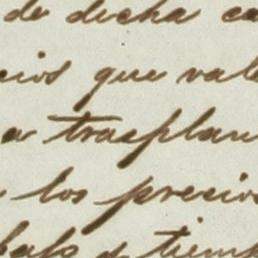 de dicha ca
cios que vale
a trasplan
los precios
de tiemp